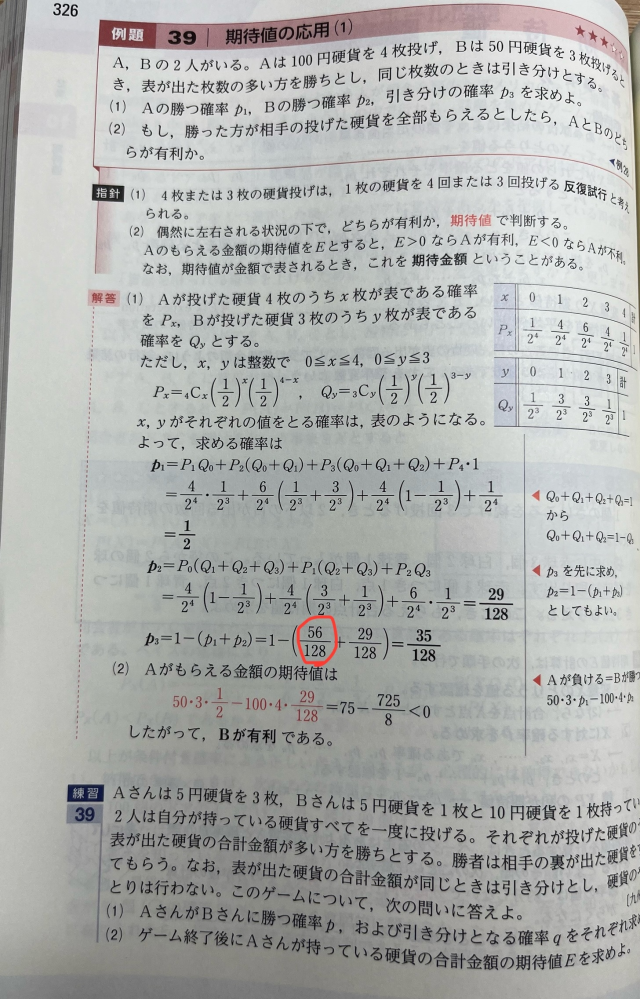 326
例題 39 期待値の応用(1) ★★★
A，Bの2人がいる。Aは100円硬貨を4枚投げ，Bは50円硬貨を3枚投げると
き，表が出た枚数の多い方を勝ちとし，同じ枚数のときは引き分けとする。
(1) Aの勝つ確率 p₁，Bの勝つ確率 p₂，引き分けの確率 p₃ を求めよ。
(2) もし，勝った方が相手の投げた硬貨を全部もらえるとしたら，AとBのどち
らが有利か。
◀例28
指針 (1) 4枚または3枚の硬貨投げは，1枚の硬貨を4回または3回投げる 反復試行 と考え
られる。
(2) 偶然に左右される状況の下で，どちらが有利か，期待値 で判断する。
Aのもらえる金額の期待値をEとすると，E>0 ならAが有利，E<0 ならAが不利。
なお，期待値が金額で表されるとき，これを 期待金額 ということがある。
解答 (1) Aが投げた硬貨4枚のうちx枚が表である確率
を Pₓ，Bが投げた硬貨3枚のうちy枚が表である
確率を Qy とする。
ただし，x，yは整数で 0≦x≦4，0≦y≦3
Pₓ=₄Cₓ(1/2)^x(1/2)^(4-x)， Qy=₃Cy(1/2)^y(1/2)^(3-y)
x，yがそれぞれの値をとる確率は，表のようになる。
x 0 1 2 3 4 計
Pₓ 1/2⁴ 4/2⁴ 6/2⁴ 4/2⁴ 1/2⁴ 1
y 0 1 2 3 計
Qy 1/2³ 3/2³ 3/2³ 1/2³ 1
よって，求める確率は
p₁=P₁Q₀+P₂(Q₀+Q₁)+P₃(Q₀+Q₁+Q₂)+P₄・1
=4/2⁴・1/2³+6/2⁴(1/2³+3/2³)+4/2⁴(1-1/2³)+1/2⁴
=1/2
◀ Q₀+Q₁+Q₂+Q₃=1
から
Q₀+Q₁+Q₂=1-Q₃
p₂=P₀(Q₁+Q₂+Q₃)+P₁(Q₂+Q₃)+P₂Q₃
=4/2⁴(1-1/2³)+4/2⁴(3/2³+1/2³)+6/2⁴・1/2³=29/128
◀ p₃ を先に求め，
p₂=1-(p₁+p₃)
としてもよい。
p₃=1-(p₁+p₂)=1-(56/128+29/128)=35/128
(2) Aがもらえる金額の期待値は
50・3・1/2-100・4・29/128=75-725/8<0
◀ Aが負ける=Bが勝つ
50・3・p₁-100・4・p₂
したがって，Bが有利 である。
練習 39 Aさんは5円硬貨を3枚，Bさんは5円硬貨を1枚と10円硬貨を1枚持ってい
2人は自分が持っている硬貨すべてを一度に投げる。それぞれが投げた硬貨の
表が出た硬貨の合計金額が多い方を勝ちとする。勝者は相手の裏が出た硬貨をす
てもらう。なお，表が出た硬貨の合計金額が同じときは引き分けとし，硬貨のや
とりは行わない。このゲームについて，次の問いに答えよ。
(1) AさんがBさんに勝つ確率p，および引き分けとなる確率qをそれぞれ求め
(2) ゲーム終了後にAさんが持っている硬貨の合計金額の期待値Eを求めよ。